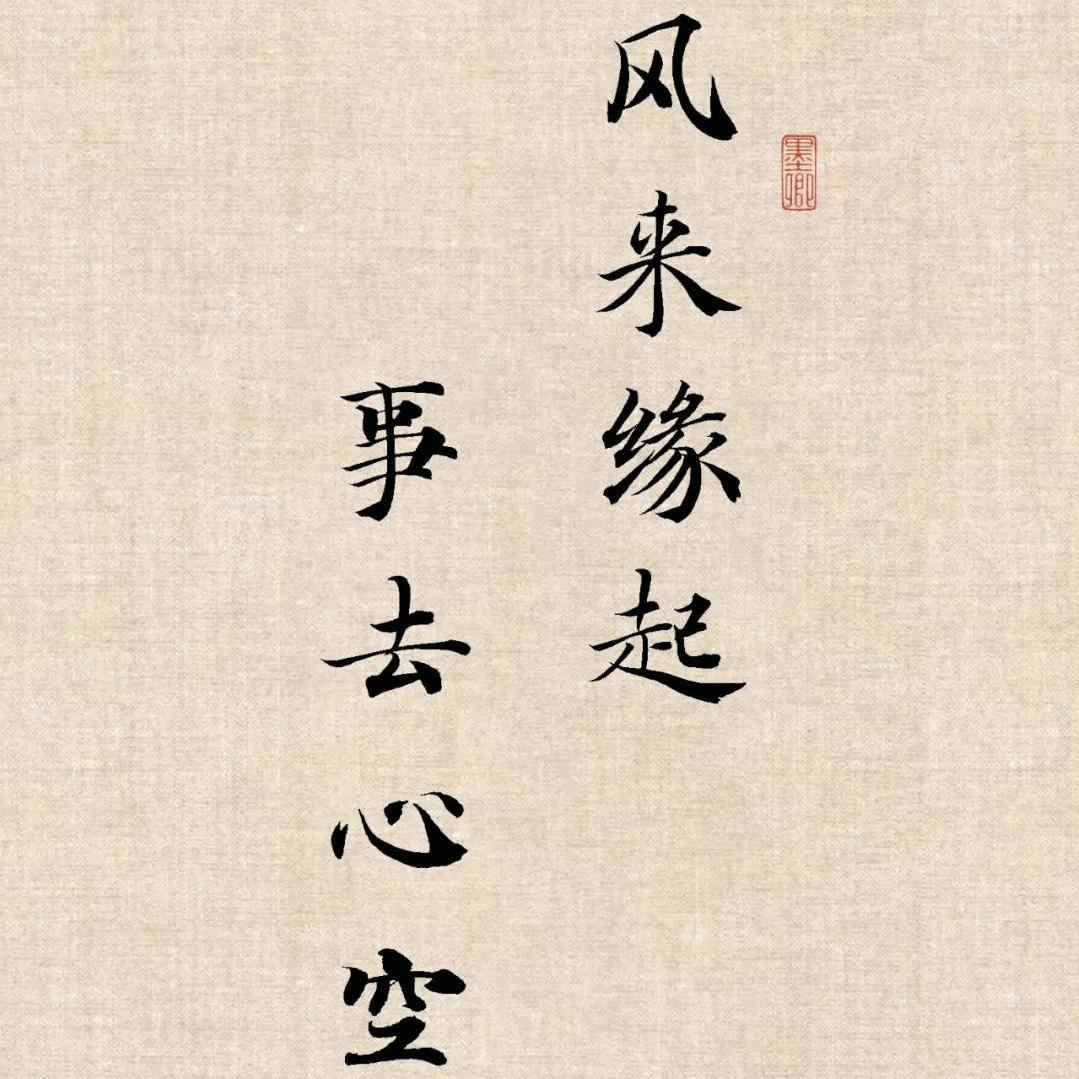 风来缘起
事去心空
墨卿